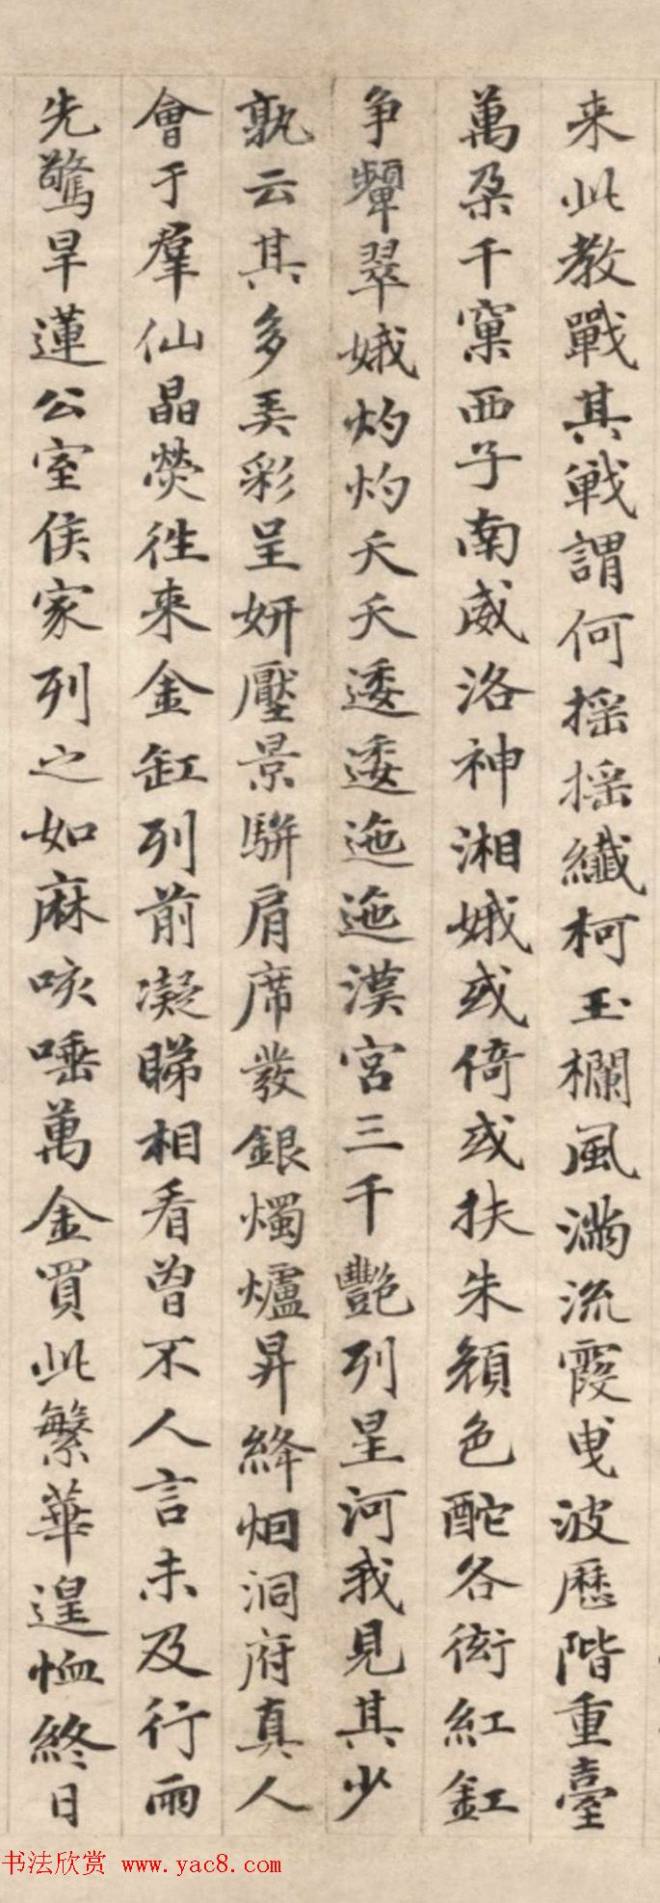 来此教戰其戦謂何揺揺纖柯玉欄風滿流霞曵波歷階重臺
萬朶千窠西子南威洛神湘娥或倚或扶朱顔色酡各衒紅釭
争顰翠娥灼灼夭夭逶逶迤迤漢宮三千艷列星河我見其少
孰云其多美彩呈妍壓景駢肩席發銀燭爐昇絳烟洞府真人
會于羣仙晶熒徃來金缸列前凝睇相看曾不人言未及行雨
先驚旱蓮公室侯家列之如麻咳唾萬金買此繁華遑恤終日
书法欣赏 www.yac8.com